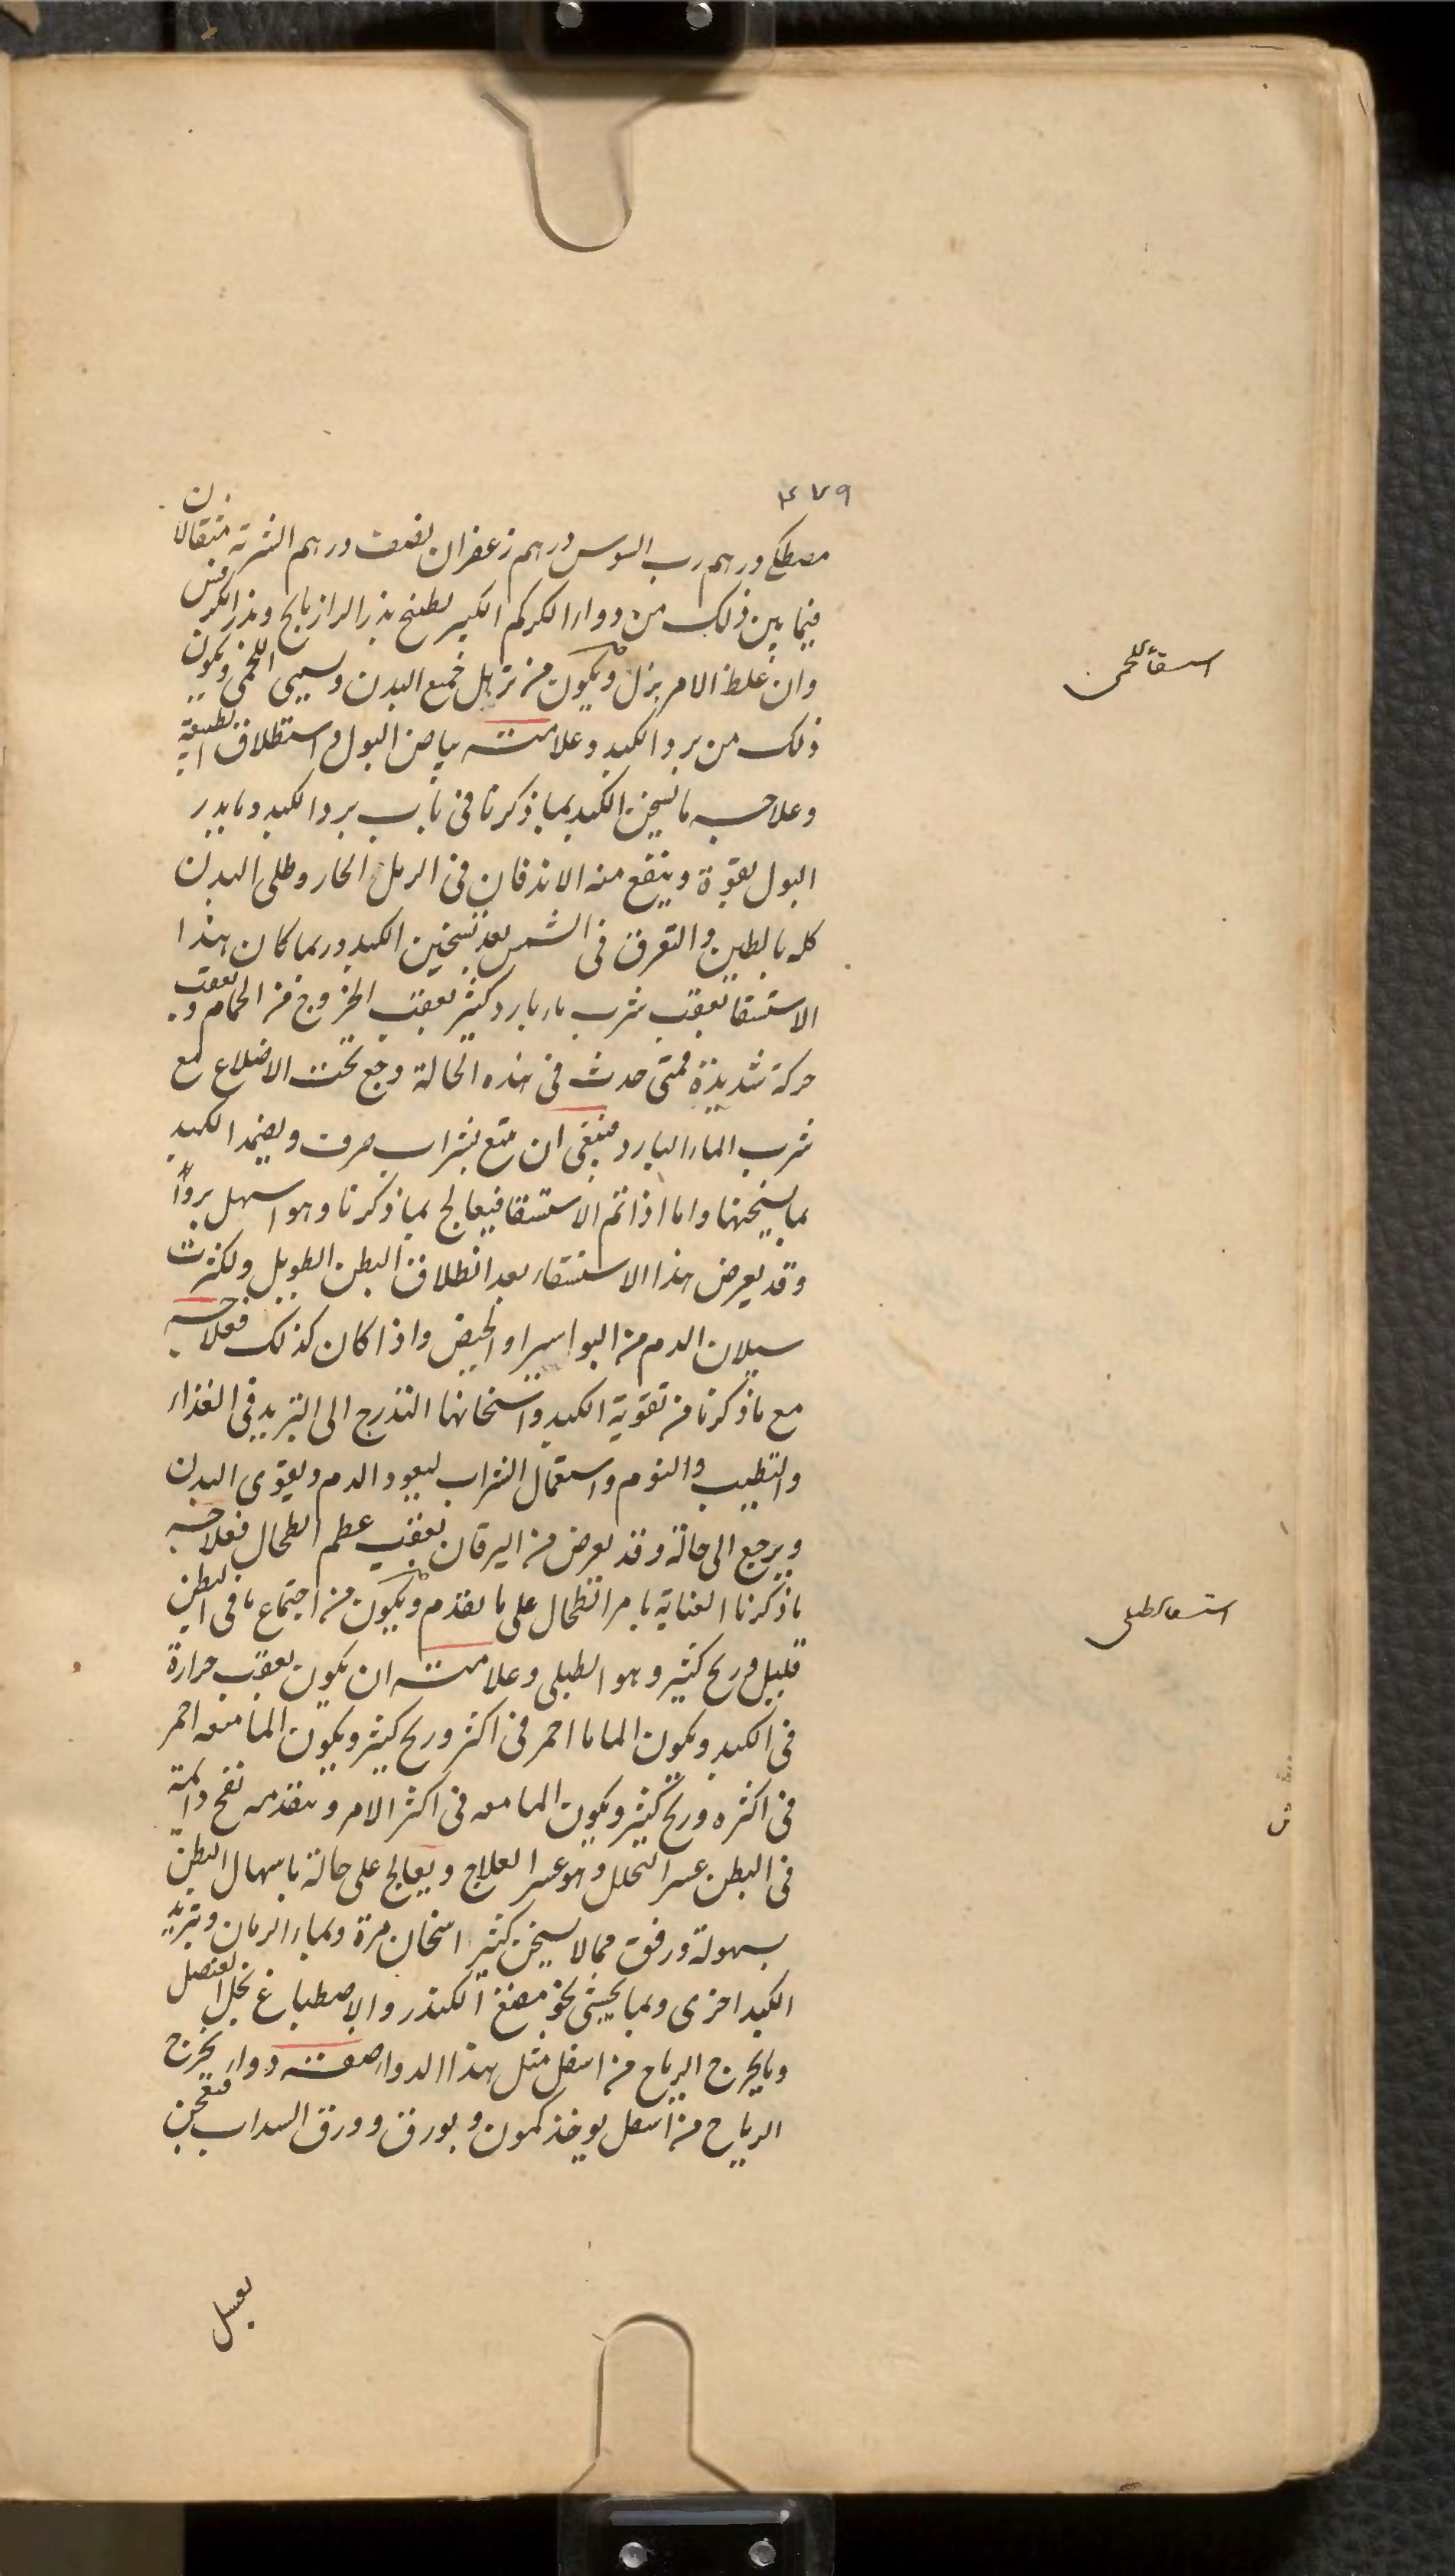 ٤٧٩
مصطكى درهم رب السوس درهم زعفران نصف درهم الشربة مثقالان
فيما بين ذلك من دواء الكركم الكبير بطبخ بذر الرازيانج وبذر الكرفس
وان غلظ الامر بزل ويكون من تربل جميع البدن ويسمى اللحمى ويكون
ذلك من برد الكبد وعلامته بياض البول واستطلاق الطبيعة
وعلاجه ما يسخن الكبد بما ذكرنا فى باب برد الكبد وما يدر
البول بقوة وينفع منه الاندفان فى الرمل الحار وطلى البدن
كله بالطين والتعرق فى الشمس بعد تسخين الكبد وربما كان هذا
الاستسقا بعقب شرب ماء بارد كثير بعقب الخروج من الحمام وبعقب
حركة شديدة فمتى حدث فى هذه الحالة وجع تحت الاضلاع مع
شرب الماء البارد فينبغى ان يتبع بشراب صرف ويضمد الكبد
بما يسخنها واما اذا تم الاستسقا فيعالج بما ذكرنا وهو اسهل بروا
وقد يعرض هذا الاستسقاء بعد انطلاق البطن الطويل ولكثرت
سيلان الدم من البواسير او الحيض واذا كان كذلك فعلاجه
مع ما ذكرنا من تقوية الكبد واسخانها التدرج الى التزيد فى الغذاء
والتطيب والنوم واستعمال الشراب ليعود الدم ويقوى البدن
ويرجع الى حالة وقد يعرض من اليرقان بعقب عظم الطحال فعلاجه
ما ذكرنا العناية بامر الطحال على ما تقدم ويكون من اجتماع ما فى البطن
قليل وريح كثير وهو الطبلى وعلامته ان يكون بعقب حرارة
فى الكبد ويكون الما ما احمر فى اكثر وريح كثير ويكون الما منعه احمر
فى اكثره وريح كثير ويكون الما معه فى اكثر الامر ويتقدمه نفخ دائمة
فى البطن عسر التحلل وهو عسر العلاج ويعالج على حالة باسهال البطن
بسهولة ورفق مما لا يسخن كثير اسخان مرة وبماء الرمان وتبريد
الكبد اخرى وبما يجشى نحو مضغ الكندر والاصطباغ بخل العنصل
وما يخرج الرياح من اسفل مثل هذا الدواء صفته دواء يخرج
الرياح من اسفل يوخذ كمون وبورق وورق السداب فتعجن
بعسل
استسقاء اللحمى
استسقاء الطبلى